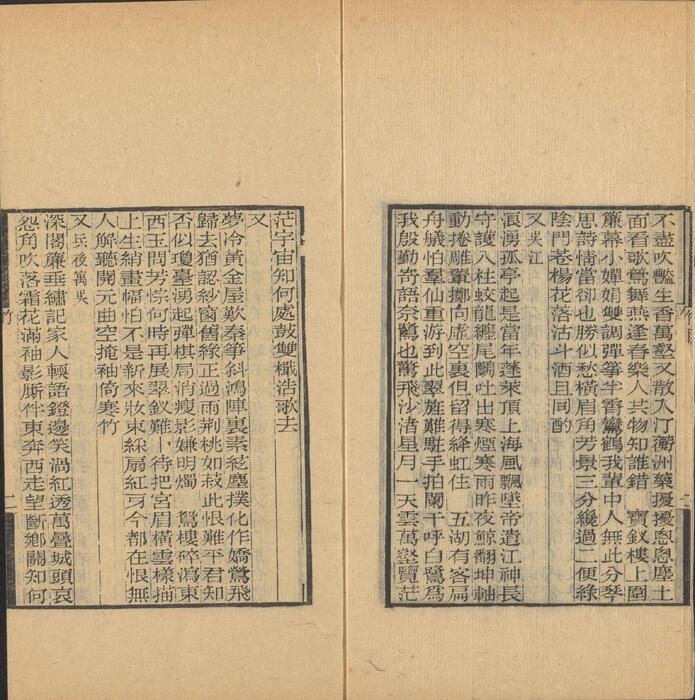 不盡吹豔生香萬壑又散入汀蘅洲藥擾擾恩恩塵土
面看歌鶯舞燕逢春樂人共物知誰錯　寶釵樓上圍
簾幕小嬋娟雙調彈箏半霄鸞鶴我輩中人無此分琴
思詩情當卻也勝似愁橫眉角芳景三分纔過二便綠
陰門巷楊花落沽斗酒且同酌
又吳江
浪湧孤亭起是當年蓬萊頂上海風飄墜帝遣江神長
守護八柱蛟龍纏尾鬭吐出寒煙寒雨昨夜鯨翻坤軸
動捲雕翬擲向虛空裏但留得絳虹住　五湖有客扁
舟艤怕羣仙重游到此翠旌難駐手拍闌干呼白鷺爲
我殷勤寄語奈鷺也驚飛沙渚星月一天雲萬壑覽茫
茫宇宙知何處鼓雙檝浩歌去
又
夢冷黃金屋歎秦箏斜鴻陣裏素絃塵撲化作嬌鶯飛
歸去猶認紗窗舊綠正過雨荆桃如菽此恨難平君知
否似瓊臺湧起彈棋局消瘦影嫌明燭　鴛樓碎瀉東
西玉問芳悰何時再展翠釵難卜待把宮眉橫雲樣描
上生綃畫幅怕不是新來妝束綵扇紅牙今都在恨無
人解聽開元曲空掩袖倚寒竹
又兵後寓吳
深閣簾垂繡記家人輭語鐙邊笑渦紅透萬疊城頭哀
怨角吹落霜花滿袖影廝伴東奔西走望斷鄉關知何
竹
二